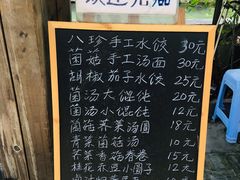 八珍手工水饺 30元
菌菇手工汤面 30元
胡椒茄子水饺 25元
菌汤大馄饨 20元
菌汤小馄饨 12元
菌菇荠菜汤圆 18元
青菜菌菇汤 10元
荠菜香菇春卷 15元
桂花赤豆小圆子 12元